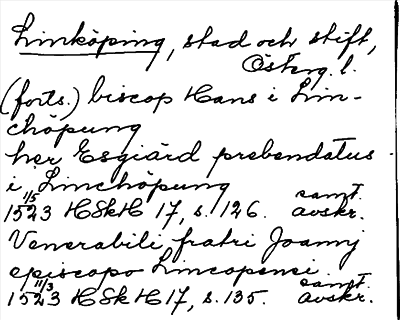 Linköping, stad och stift,
Österg. l.
(forts.) biscop Hans i Lin-
chöpung
her Esgiärd prebendatus
i Linchöpung
1523 1/5 HSkH 17, s. 126. samt. avskr.
Venerabili fratri Joannj
episcopo Lincopensi
1523 11/3 HSkH 17, s. 135. samt. avskr.